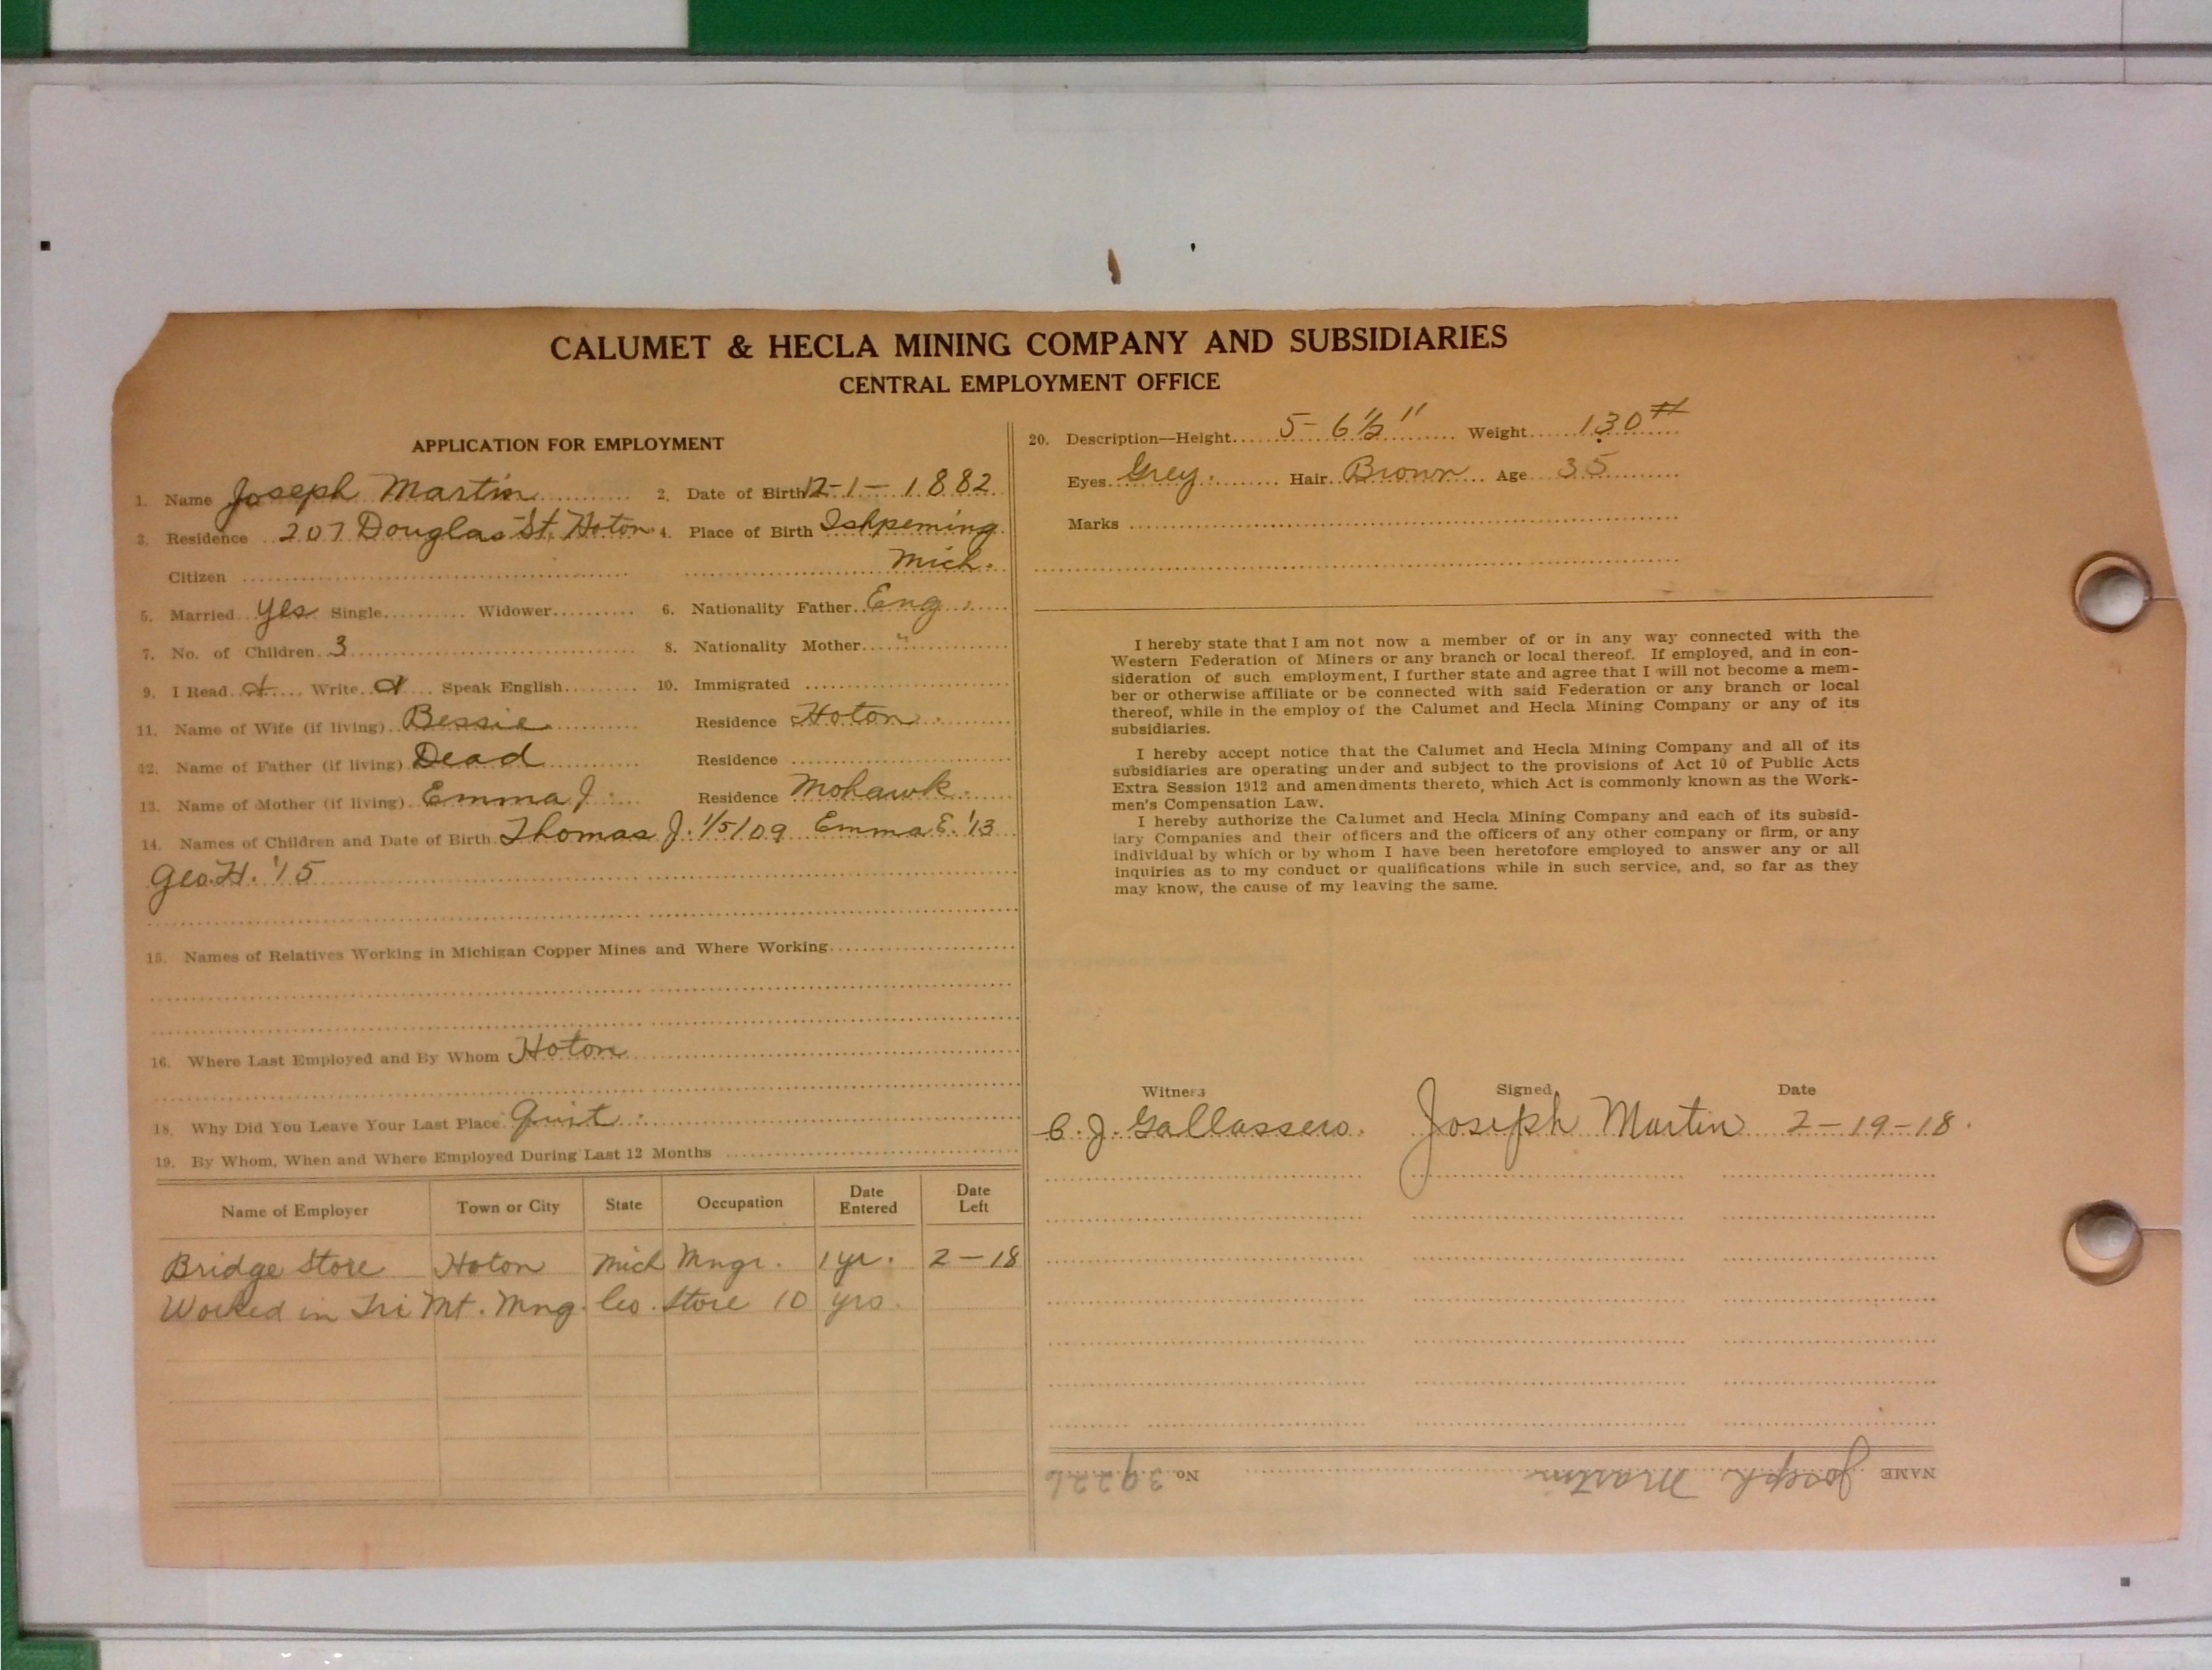 CALUMET & HECLA MINING COMPANY AND SUBSIDIARIES
CENTRAL EMPLOYMENT OFFICE
APPLICATION FOR EMPLOYMENT
1. Name Joseph Martin 2. Date of Birth 12-1-1882
3. Residence 207 Douglas St. Hoton. 4. Place of Birth Ishpeming
Citizen Mich.
5. Married yes Single Widower 6. Nationality Father Eng.
7. No. of Children 3 8. Nationality Mother "
9. I Read Write Speak English 10. Immigrated
11. Name of Wife (if living) Bessie Residence Hoton.
12. Name of Father (if living) Dead Residence
13. Name of Mother (if living) Emma J. Residence Mohawk.
14. Names of Children and Date of Birth Thomas J. 1/5/09 Emma E. '13
Geo. H. '15
15. Names of Relatives Working in Michigan Copper Mines and Where Working
16. Where Last Employed and By Whom Hoton
18. Why Did You Leave Your Last Place Quit.
19. By Whom, When and Where Employed During Last 12 Months
Name of Employer Town or City State Occupation Date Entered Date Left
Bridge Store Hoton Mich Mngr. 1 yr. 2-18
Worked in Tri Mt. Mng. Co. Store 10 yrs.
20. Description—Height 5-6½" Weight 130#
Eyes Grey. Hair Brown Age 35
Marks
I hereby state that I am not now a member of or in any way connected with the
Western Federation of Miners or any branch or local thereof. If employed, and in con-
sideration of such employment, I further state and agree that I will not become a mem-
ber or otherwise affiliate or be connected with said Federation or any branch or local
thereof, while in the employ of the Calumet and Hecla Mining Company or any of its
subsidiaries.
I hereby accept notice that the Calumet and Hecla Mining Company and all of its
subsidiaries are operating under and subject to the provisions of Act 10 of Public Acts
Extra Session 1912 and amendments thereto, which Act is commonly known as the Work-
men's Compensation Law.
I hereby authorize the Calumet and Hecla Mining Company and each of its subsid-
iary Companies and their officers and the officers of any other company or firm, or any
individual by which or by whom I have been heretofore employed to answer any or all
inquiries as to my conduct or qualifications while in such service, and, so far as they
may know, the cause of my leaving the same.
Witness Signed Date
C. J. Gallassero. Joseph Martin 2-19-18.
NAME Joseph Martin No. 39226